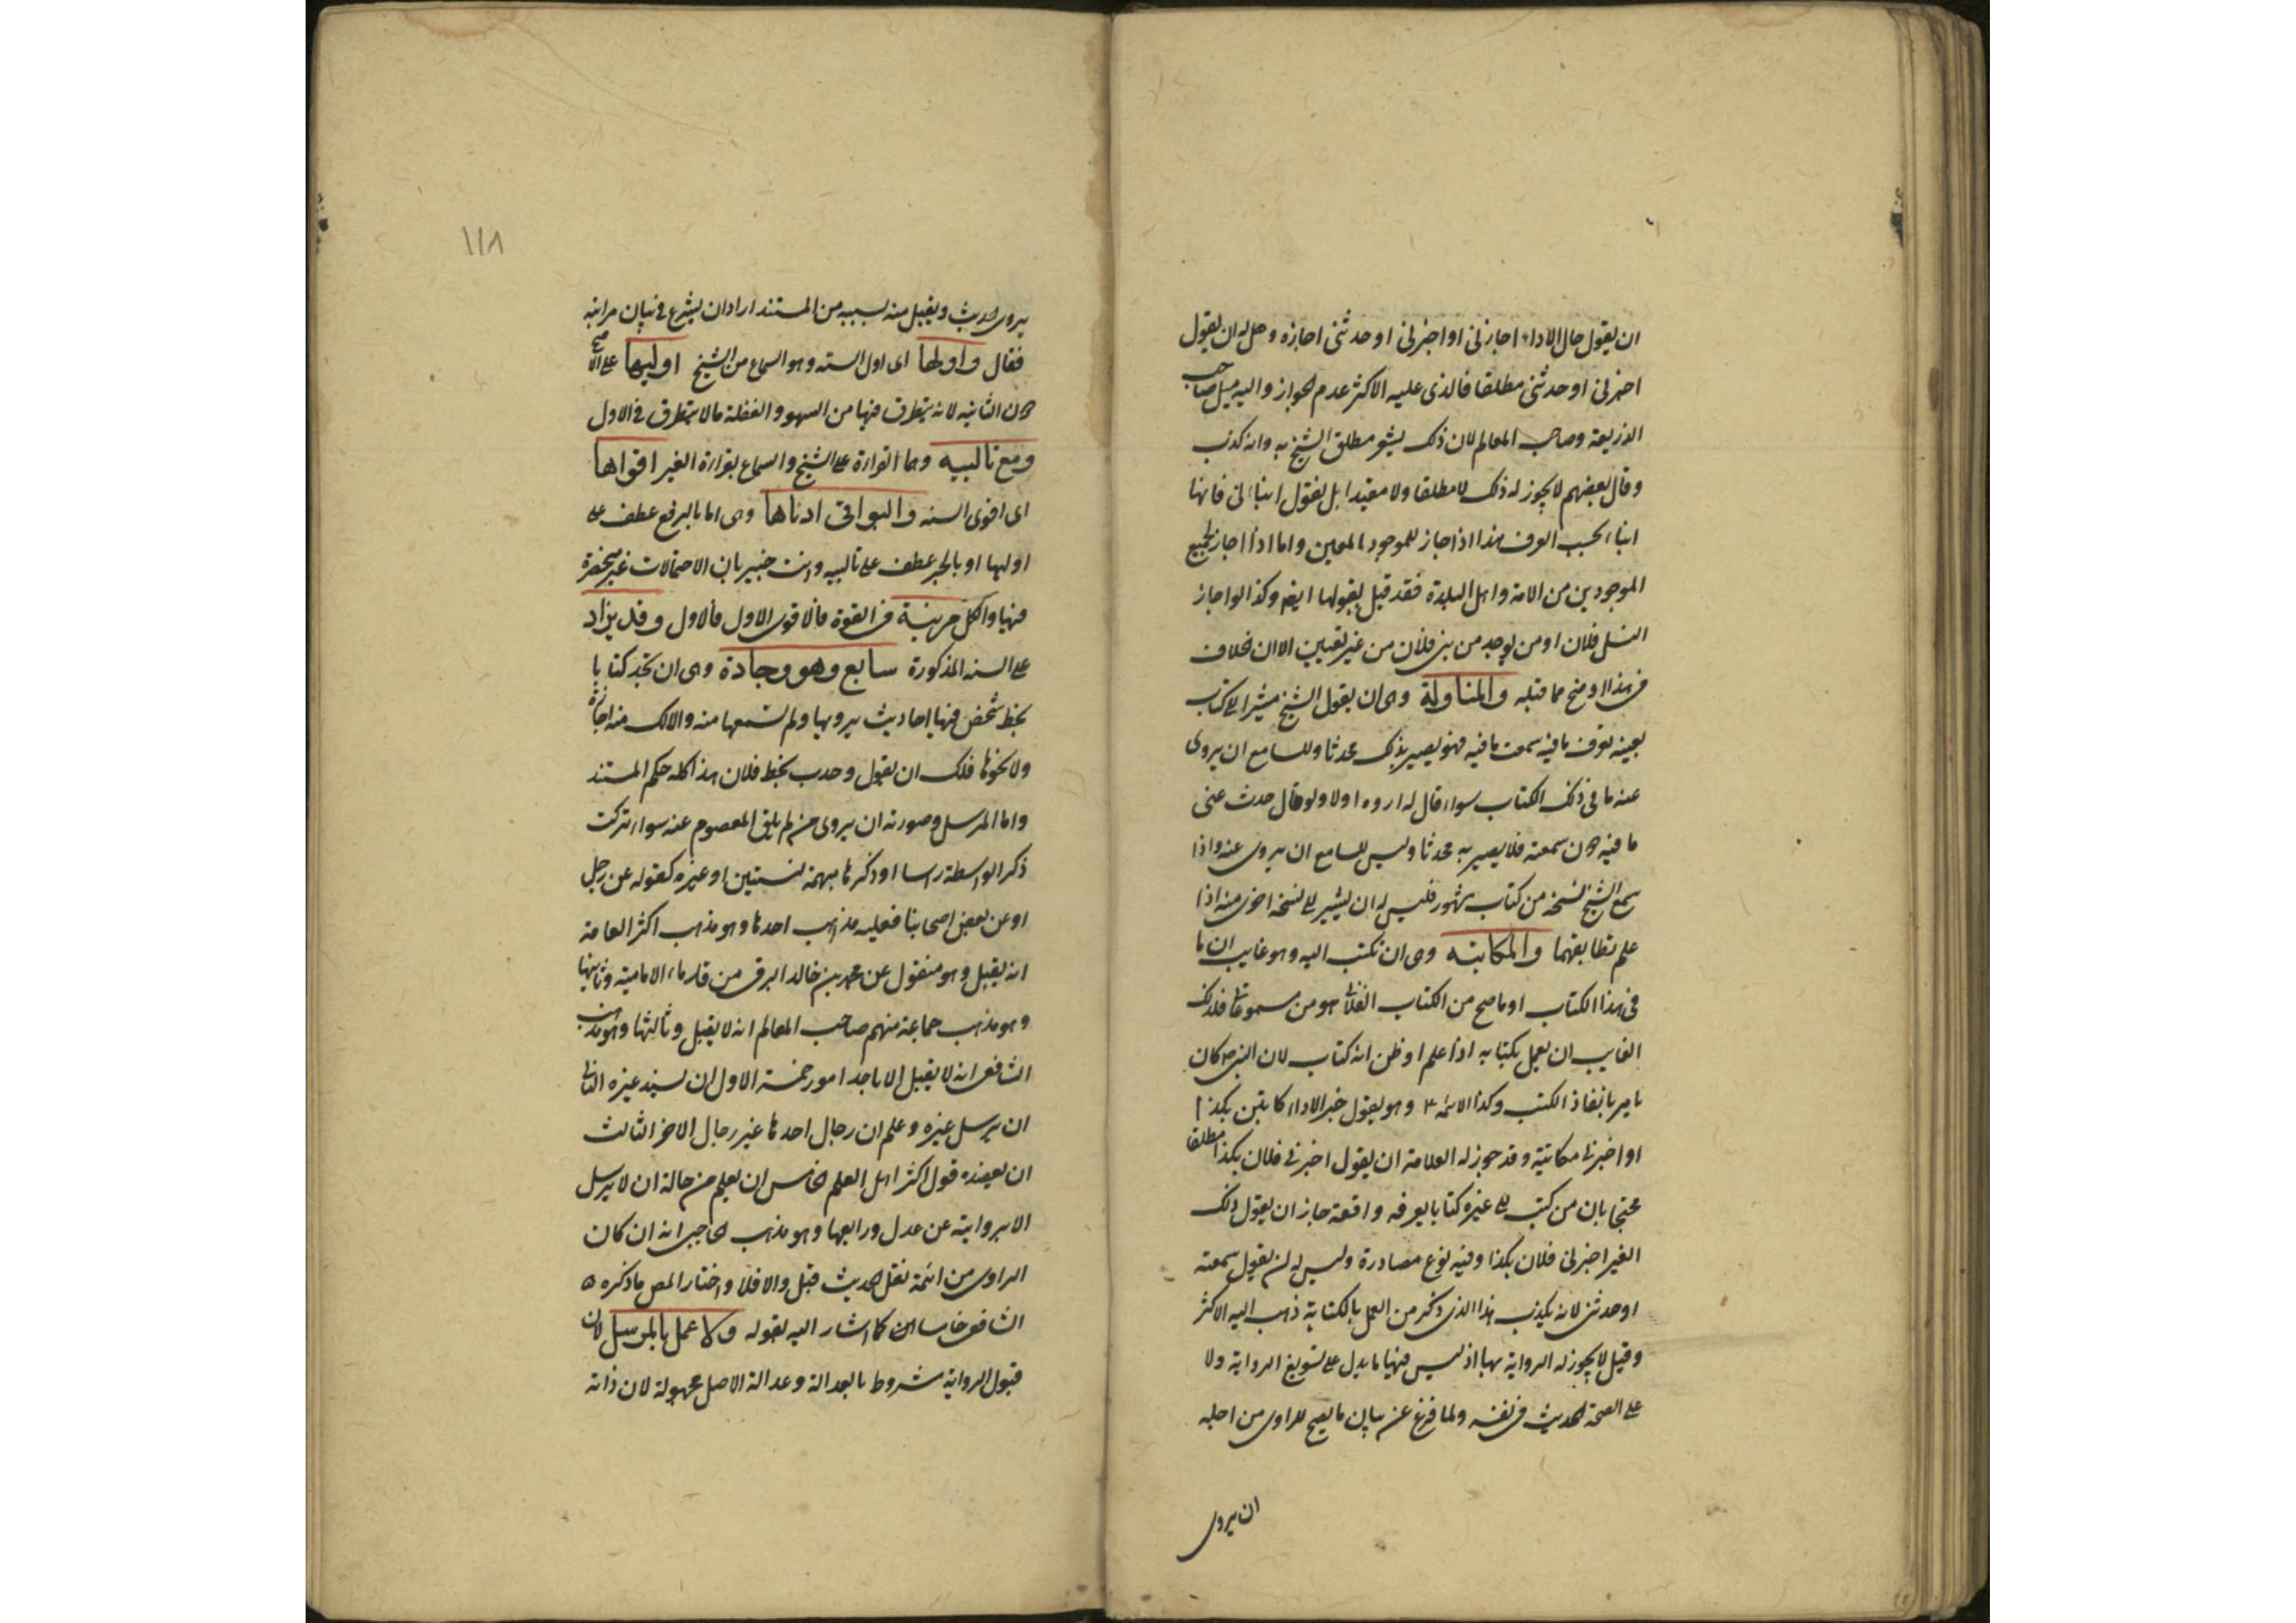 ان يقول حال الاداء اجازني او اخبرني او حدثني اجازه وهل له ان يقول
اخبرني او حدثني مطلقا فالذي عليه الاكثر عدم الجواز واليه ميل صاحب
الذريعة وصاحب المعالم لان ذلك يشعر مطلق الشيخ به وانه كذب
وقال بعضهم لا يجوز له ذلك لا مطلقا ولا مقيدا بل يقول انباني فانها
انباء بحسب العرف هذا اذا جاز للموجود المعين واما اذا اجاز لجميع
الموجودين من الامة واهل البلدة فقد قيل بقبولها ايضا وكذا لو اجاز
النسل فلان او من يوجد من بني فلان من غير تعيين الا ان خلاف
في هذا اوضح مما قبله والمناولة وهي ان يقول الشيخ مشيرا الى كتاب
بعينه يعرف ما فيه سمعت ما فيه فهو يصير بذلك محدثا وللسامع ان يروي
عنه ما في ذلك الكتاب سواء قال له اروه او لا ولو قال حدث عني
ما فيه سمعته فلا يصير به محدثا وليس للسامع ان يروي عنه واذا
سمع الشيخ نسخة من كتاب مشهور فليس له ان يشير الى نسخة اخرى منه اذا
علم تطابقهما والمكاتبه وهي ان يكتب اليه وهو غايب ان ما
في هذا الكتاب او ما صح من الكتاب الفلاني هو من مسموعاتي فلذلك
الغايب ان يعمل بكتابه اذا علم او ظن انه كتاب لان النبي ص كان
يامر بانفاذ الكتب وكذا الائمة ع وهو يقول خبر الاداء كاتبني بكذا
او اخبرني مكاتبة وقد جوز له العلامة ان يقول اخبرني فلان بكذا مطلقا
محتجا بان من كتب الى غيره كتابا يعرفه واقعة جاز ان يقول ذلك
الغير اخبرني فلان بكذا وفيه نوع مصادرة وليس له ان يقول سمعته
او حدثني لانه يكذب هذا الذي ذكر من العمل بالكتابة ذهب اليه الاكثر
وقيل لا يجوز له الرواية بها اذ ليس فيها ما يدل على تسويغ الرواية ولا
على الصحة الحديث في نفسه ولما فرغ عن بيان ما يصح للراوي من اجله
ان يروي
١١٨
يروي الحديث ويقبل منه بسببه من المستند اراد ان يشرع في بيان مراتبه
فقال واولها اى اول الستة وهو السماع من الشيخ اوليها على الاصح
دون الثانيه لانه يتطرق فيها من السهو والغفلة ما لا يتطرق في الاول
ومع تالييه وهما القراءة على الشيخ والسماع بقراءة الغير اقواها
اى اقوى الستة والبواقي ادناها وهي اما بالرفع عطف على
اوليها او بالجر عطف على تالييه وانت خبير بان الاحتمالات غير منحصرة
فيها والكل مرتبة في القوة فالاقوى الاول فالاول وقد يزاد
على الستة المذكورة سابع وهو وجادة وهي ان تجد كتابا
بخط شخص فيها احاديث يرويها ولم تسمعها منه ولا لك منه اجازة
ولا نحوها فلك ان تقول وجدت بخط فلان هذا كله حكم المستند
واما المرسل وصورته ان يروي من لم يلق المعصوم عنه سواء تركت
ذكر الواسطة راسا او ذكرها مبهمة لنسيان او غيره كقوله عن رجل
او عن بعض اصحابنا فعليه مذاهب احدها وهو مذهب اكثر العامة
انه يقبل وهو منقول عن محمد بن خالد البرقي من قدماء الامامية وثانيها
وهو مذهب جماعة منهم صاحب المعالم انه لا يقبل وثالثها وهو مذهب
الشافعي انه لا يقبل الا باحد امور خمسة الاول ان يسند غيره الثاني
ان يرسل غيره وعلم ان رجال احدهما غير رجال الاخر الثالث
ان يعضده قول اكثر اهل العلم الخامس ان يعلم من حاله ان لا يرسل
الا برواية عن عدل ورابعها وهو مذهب الحاجبي انه ان كان
الراوي من ائمة نقل الحديث قبل والا فلا واختار المص ما ذكره
الشافعي خامسا كما اشار اليه بقوله ولا عمل بالمرسل لان
قبول الرواية مشروط بالعدالة وعدالة الاصل مجهولة لان ذاته